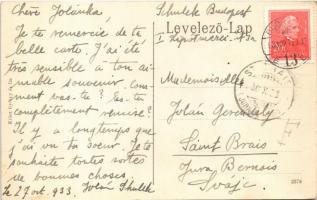 Chère Jolánka,
Je te remercie de ta
belle carte. J'ai été
très sensible à ton ai-
mable souvenir. Com-
ment vas-te? Es-tu
complètement remise?
Il y a longtemps que
j'ai vu ta soeur. Je te
souhaite toutes sortes
de bonnes choses
Le 27 oct. 933. Jolán Schulek
Schulek Budapest
Levelező-Lap
I.
Mademoiselle
Jolán
Saint Brais
Jura Bernois
Svájc